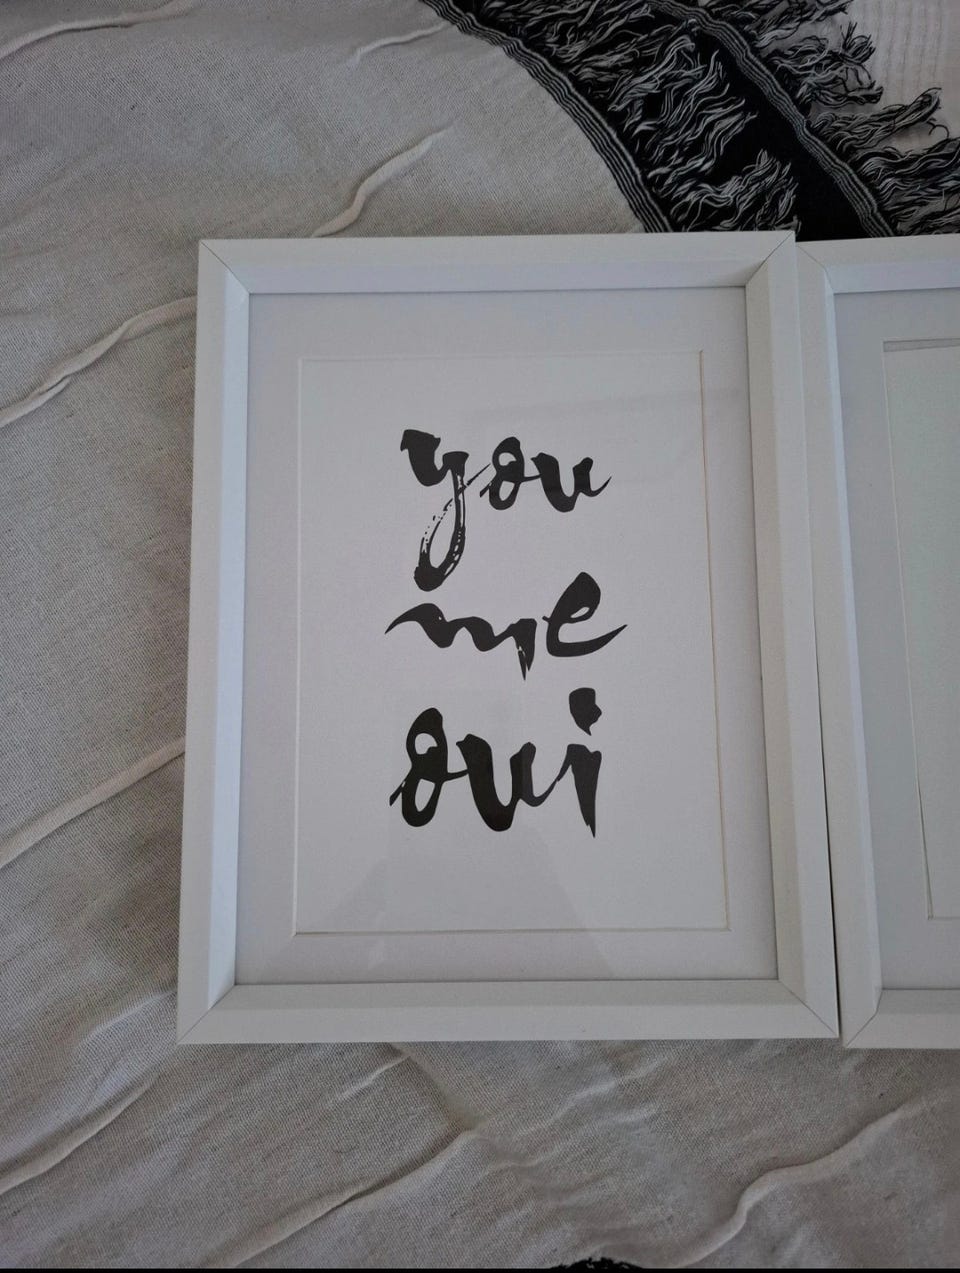 you
me
oui